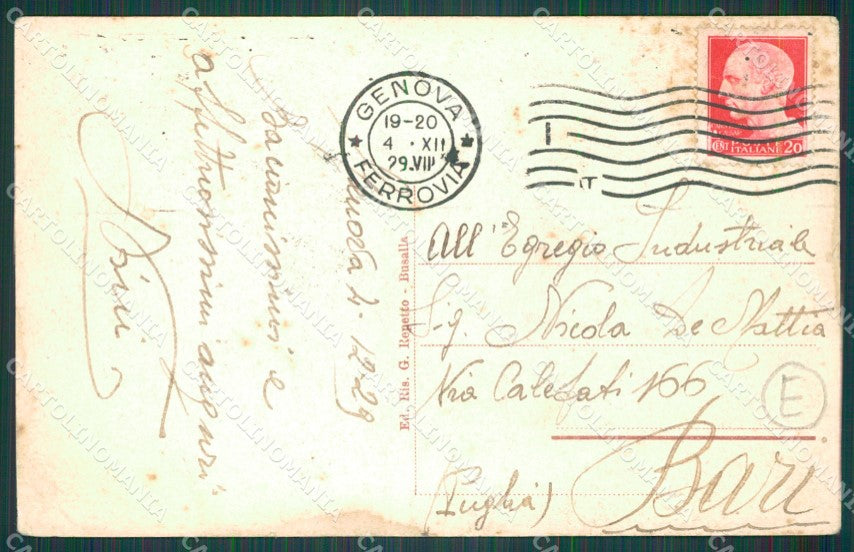 GENOVA
19-20
4 · XII
29.VIII
FERROVIA
CENT ITALIANE 20
Genova 4-12-29
Bacionissimi e
affettuosissimi auguri
All'Egregio Industriale
Sig. Nicola De Mattia
Via Calefati 166
Bari
(Puglia)
E
Ed. Ris. G. Repetto - Busalla
CARTOLINOMANIA